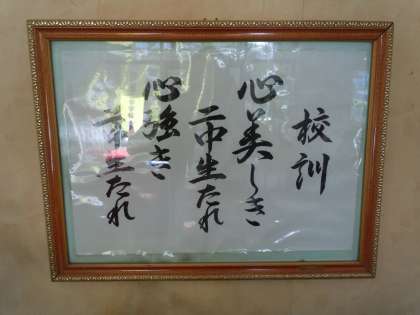 校訓
心美しき
二中生たれ
心強き
二中生たれ